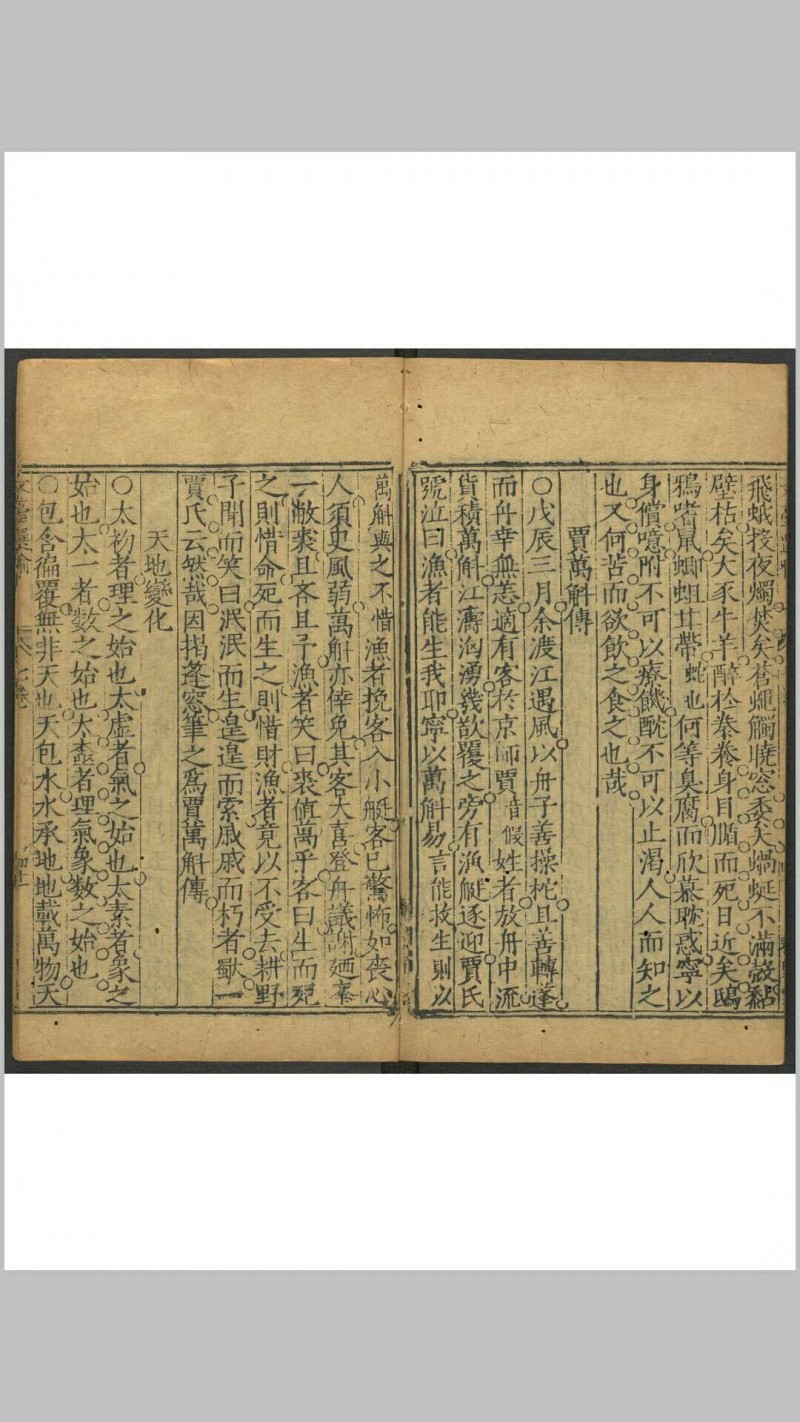 飛蛾投夜燭焚矣蒼蠅觸曉窓委矣蝸蜓不滿殼黏
壁枯矣大豕牛羊醉於豢養身目順而死日近矣鴟
鴉嗜鼠蝍蛆甘帶蛇也何等臭腐而欣慕耽惑寧以
身償噫附不可以療饑酖不可以止渴人人而知之
也又何苦而欲飲之食之也哉
賈萬斛傳
○戊辰三月余渡江遇風以舟子善操柁且善轉蓬
而舟幸無恙適有客於京師賈音假姓者放舟中流
貨積萬斛江濤洶湧幾欲覆之旁有漁艇逐迎賈氏
號泣曰漁者能生我耶寧以萬斛易言能救生則以
萬斛與之不惜漁者挽客入小艇客已驚怖如喪心
人須史風弱萬斛亦倖免其客大喜登舟議謝廼摹
一敝裘且吝且予漁者笑曰裘值萬乎客曰生而死
之則惜命死而生之則惜財漁者竟以不受去耕野
子聞而笑曰泯泯而生遑遑而索戚戚而朽者獸一
賈氏云然哉因揭蓬窓筆之爲賈萬斛傳
天地變化
○太初者理之始也太虛者氣之始也太素者象之
始也太一者數之始也太極者理氣象數之始也
○包含徧覆無非天也天包水水承地地載萬物天